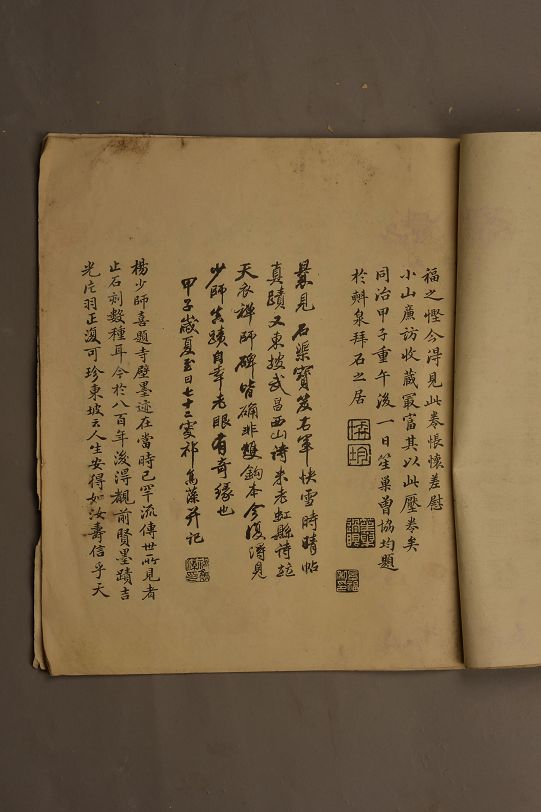 福之慳今得見此卷悵懷差慰
小山廣訪收藏冣富其以此壓卷矣
同治甲子重午後一日笙巢曾協均題
於㪷泉拜石之居
曩見石渠寶笈右軍快雪時晴帖
真蹟又東坡武昌西山詩米老虹縣詩
天衣禪師碑皆确非雙鉤本今復得見
少師真蹟自幸老眼有奇緣也
甲子歲夏至日七十二叟祁寯藻并記
楊少師喜題寺壁墨迹在當時已罕流傳世所見者
止石刻數種耳今於八百年後得覩前賢墨蹟吉
光片羽正復可珍東坡云人生安得如汝壽信乎天